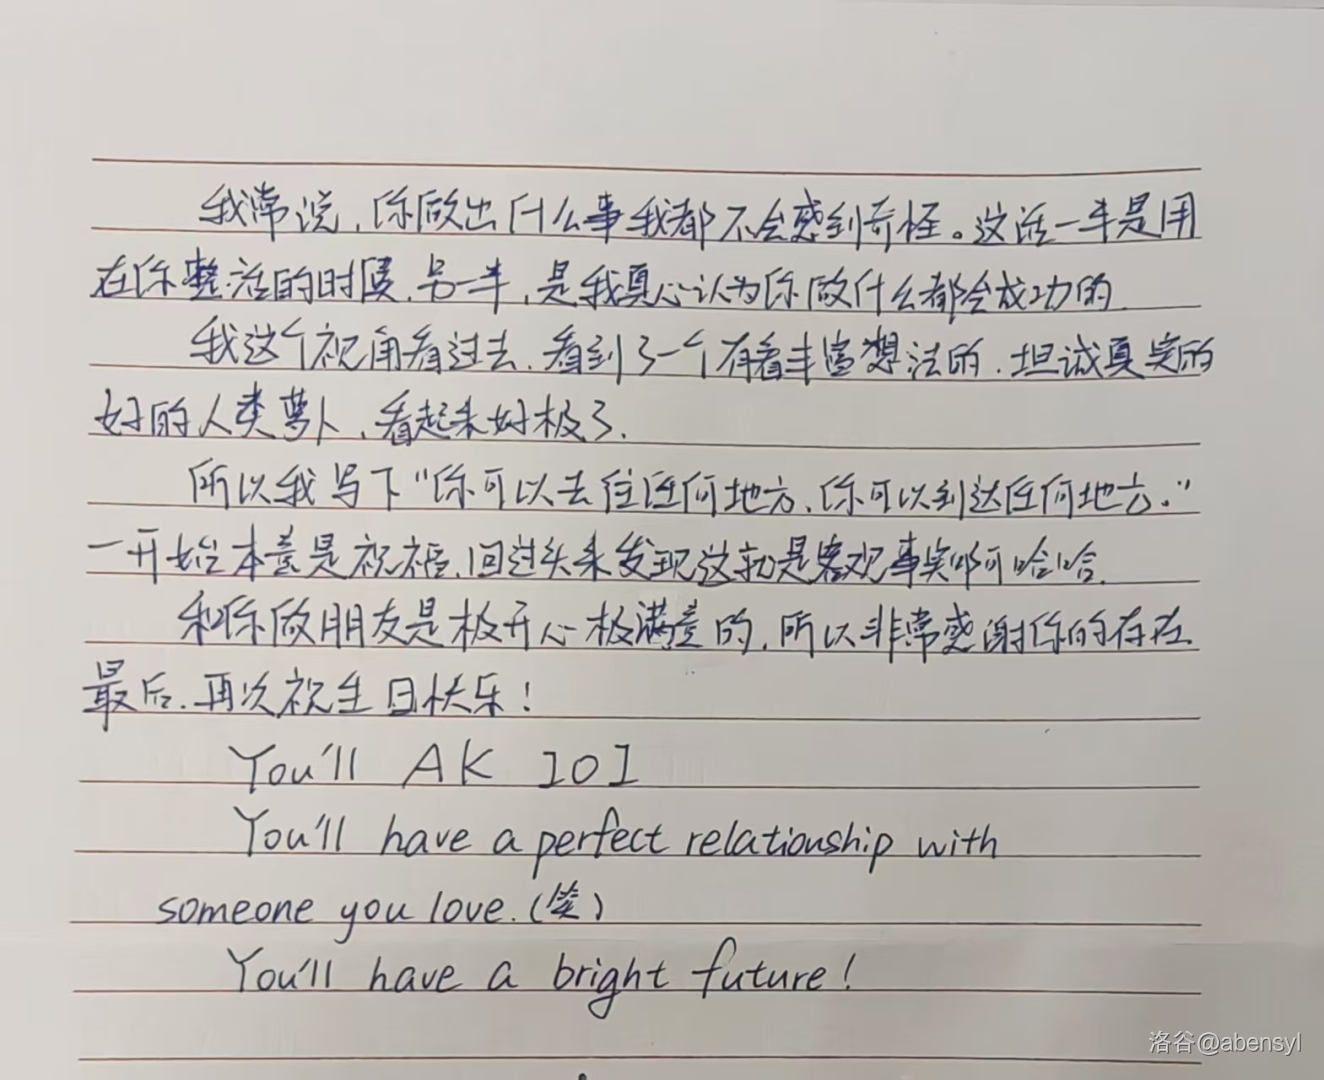 我常说，你做出什么事我都不会感到奇怪。这话一半是用
在你整活的时候，另一半，是我真心认为你做什么都会成功的.
我这个视角看过去，看到了一个有着丰富想法的，坦诚真实的
好的人类萝卜，看起来好极了.
所以我写下“你可以去往任何地方，你可以到达任何地方。”
一开始本意是祝福，回过头来发现这就是客观事实啊哈哈.
和你做朋友是极开心极满意的，所以非常感谢你的存在
最后，再次祝生日快乐！
You'll AK IOI
You'll have a perfect relationship with
someone you love.（笑）
You'll have a bright future!
洛谷@abensyl